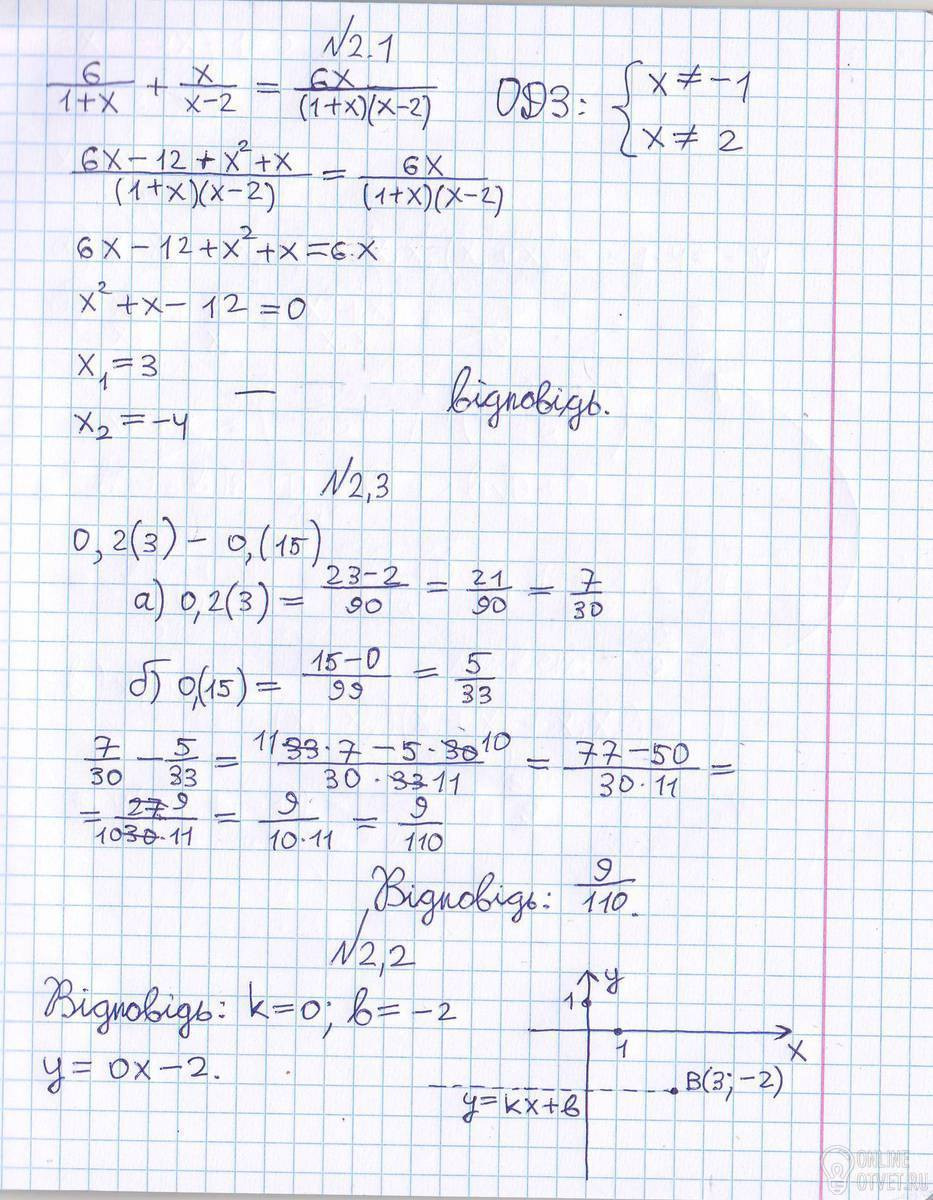 №2.1
6/(1+x) + x/(x-2) = 6x/((1+x)(x-2)) ОДЗ: { x ≠ -1
x ≠ 2
(6x-12+x²+x)/((1+x)(x-2)) = 6x/((1+x)(x-2))
6x-12+x²+x=6·x
x²+x-12=0
x₁=3
x₂=-4 — відповідь.
№2,3
0,2(3) - 0,(15)
а) 0,2(3) = (23-2)/90 = 21/90 = 7/30
б) 0,(15) = (15-0)/99 = 5/33
7/30 - 5/33 = (11 33·7 - 5·30 10)/(30·33 11) = (77-50)/(30·11) =
= (27 9)/(10 30·11) = 9/(10·11) = 9/110
Відповідь: 9/110.
№2,2
Відповідь: k=0; b=-2
y=0x-2.
y
1
1
x
B(3;-2)
y=kx+b
ONLINE
OTVET.RU